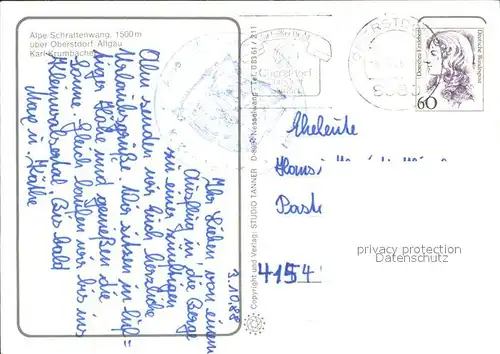 Alpe Schrattenwang, 1500 m
über Oberstdorf, Allgäu
Karl Krumbacher
3.10.88
Ihr Lieben von einem
Ausflug in die Berge
zu einer zünftigen
Alm senden wir Euch herzliche
Urlaubsgrüße. Wir sitzen in luf=
tiger Höhe und genießen die
Sonne. Gleich laufen wir bis ins
Kleinwalsertal. Bis bald
Max u. Käthe
Copyright und Verlag: STUDIO TANNER
Nesselwang
Tel. 08361/211
Deutsche Bundespost
60
Eheleute
Hans
4154
privacy protection
Datenschutz